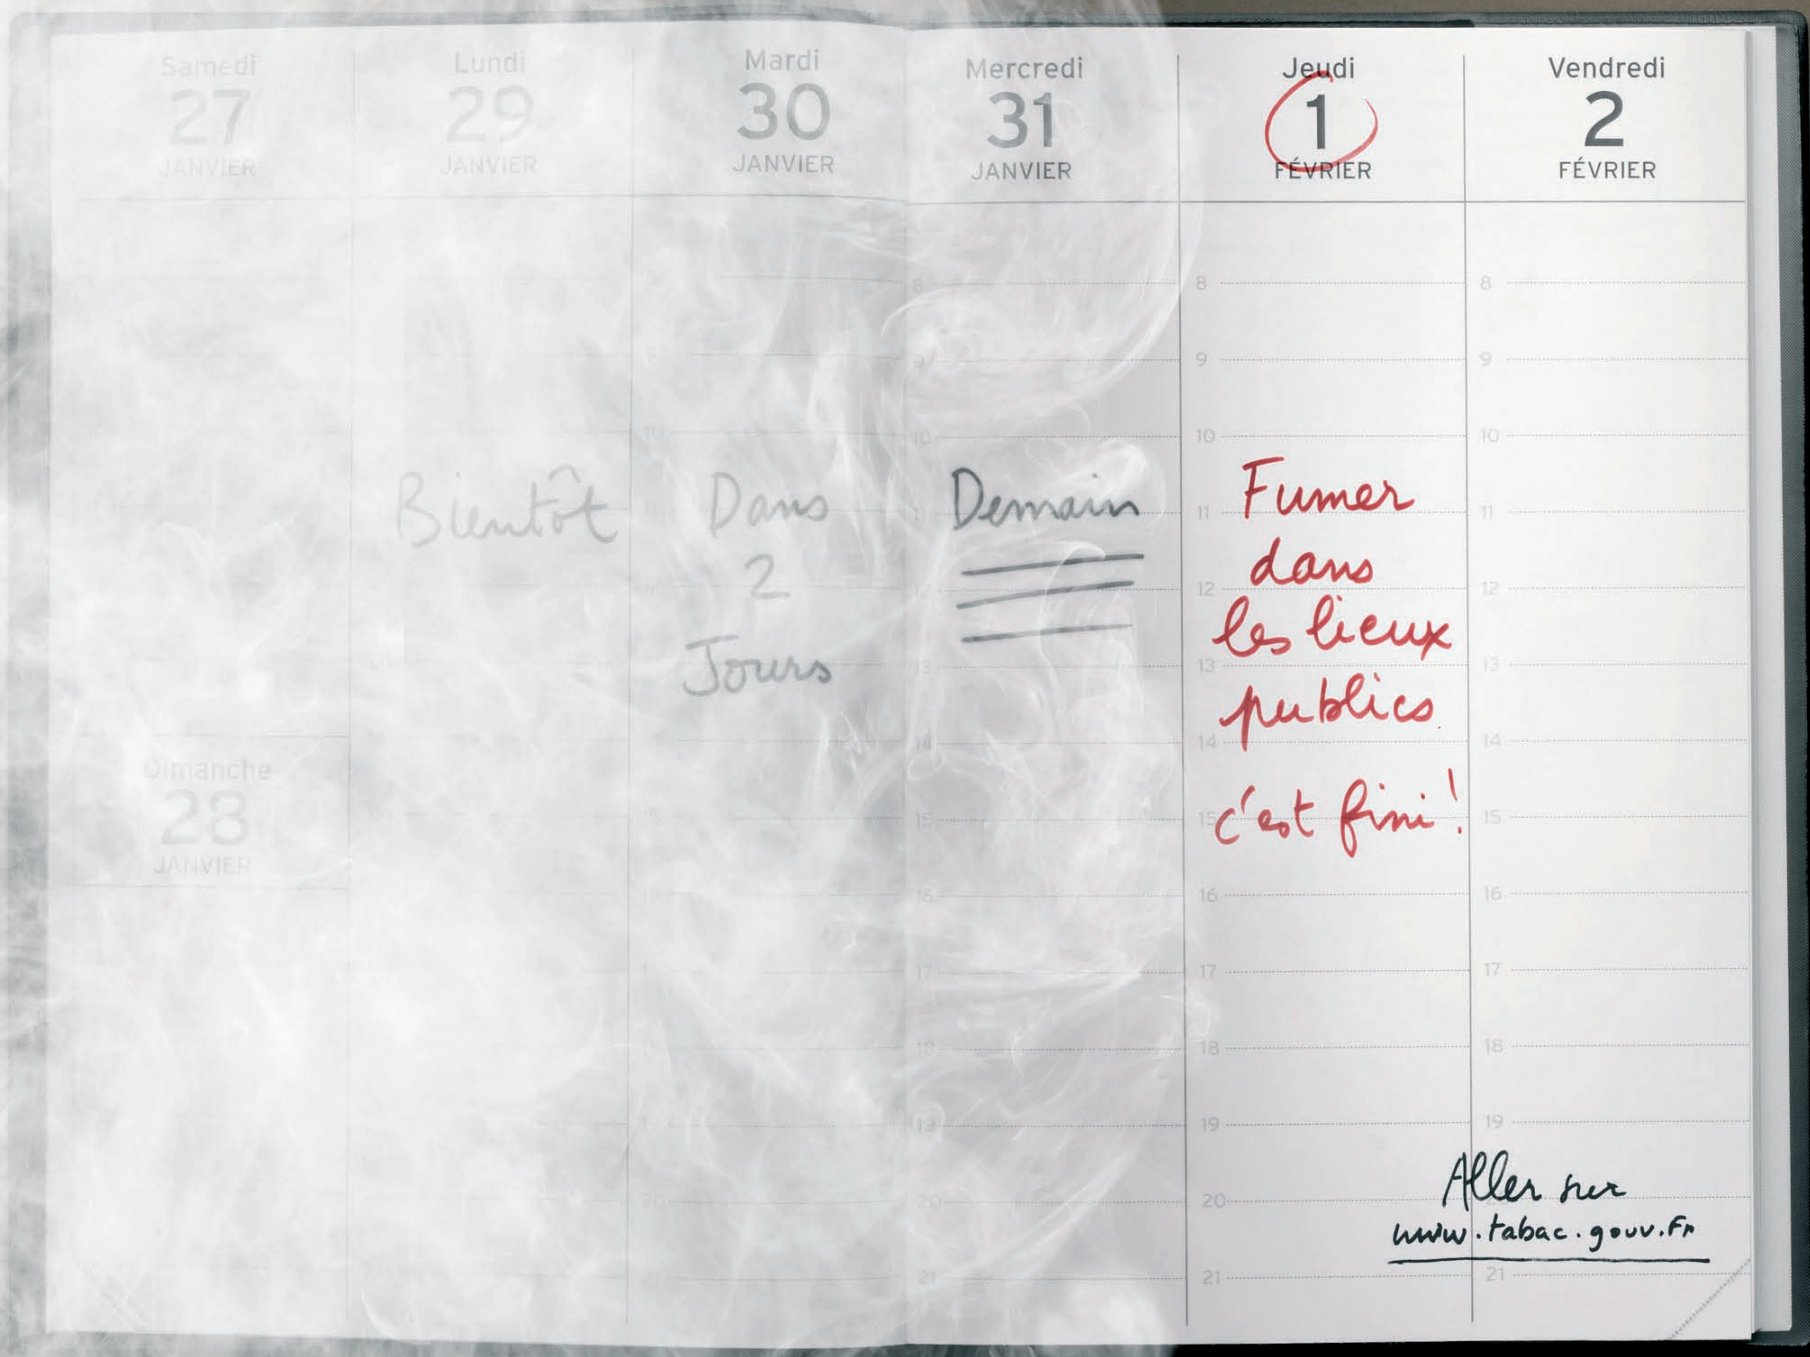 Samedi
27
JANVIER
Dimanche
28
JANVIER
Lundi
29
JANVIER
Bientôt
Mardi
30
JANVIER
Dans
2
Jours
Mercredi
31
JANVIER
Demain
8
9
10
11
12
13
14
15
16
17
18
19
20
21
Jeudi
1
FÉVRIER
8
9
10
11
12
13
14
15
16
17
18
19
20
21
Fumer
dans
les lieux
publics
c'est fini !
Vendredi
2
FÉVRIER
8
9
10
11
12
13
14
15
16
17
18
19
21
Aller sur
www.tabac.gouv.fr